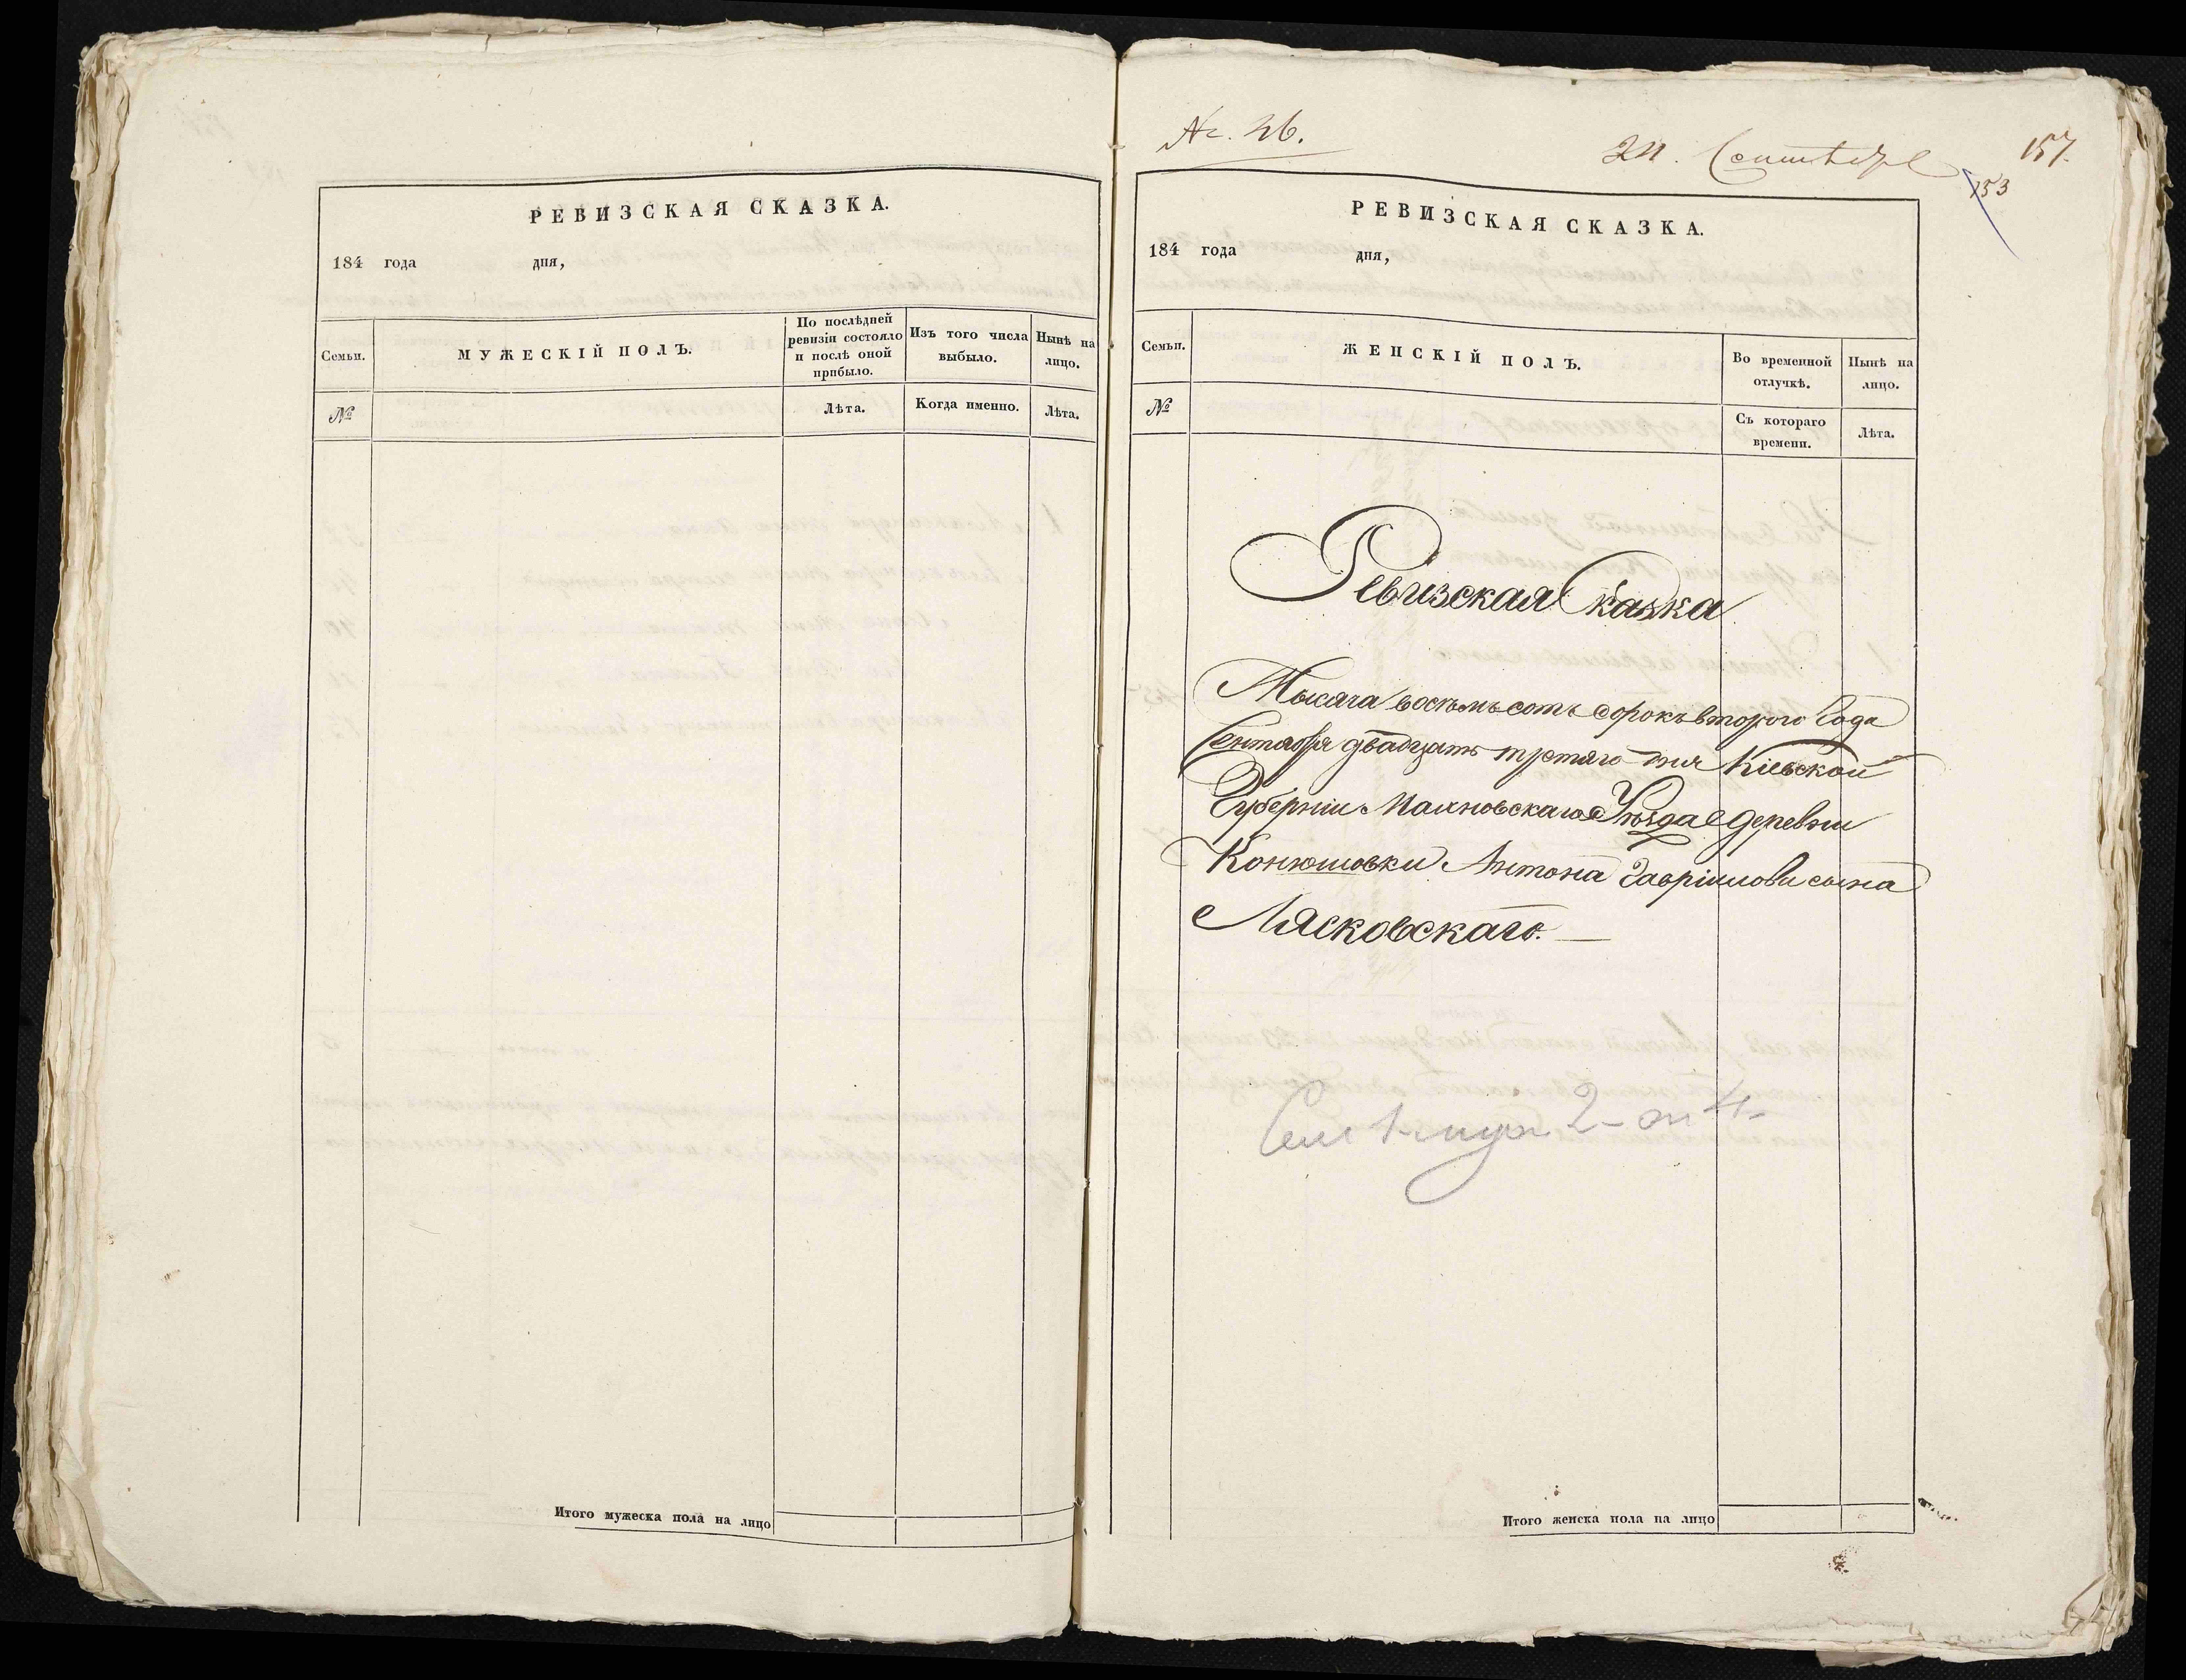 РЕВИЗСКАЯ СКАЗКА.
184 года дня,
Семьи.
МУЖЕСКІЙ ПОЛЪ.
По послѣдней
ревизіи состояло
и послѣ оной
прибыло.
Изъ того числа
выбыло.
Нынѣ на
лицо.
№
Лѣта.
Когда именно.
Лѣта.
Итого мужеска пола на лицо
№. 26.
24. Сентября
157.
153
РЕВИЗСКАЯ СКАЗКА.
184 года дня,
Семьи.
ЖЕНСКІЙ ПОЛЪ.
Во временной
отлучкѣ.
Нынѣ на
лицо.
№
Съ котораго
времени.
Лѣта.
Ревизская Сказка
Тысяча восемьсотъ сорокъ втораго Года
Сентября двадцать третяго дня Кіевской
Губерніи Махновскаго Уѣзда деревни
Конюшовки Антона Гавріилова сына
Лясковскаго.
1 муж 2 4
Итого женска пола на лицо